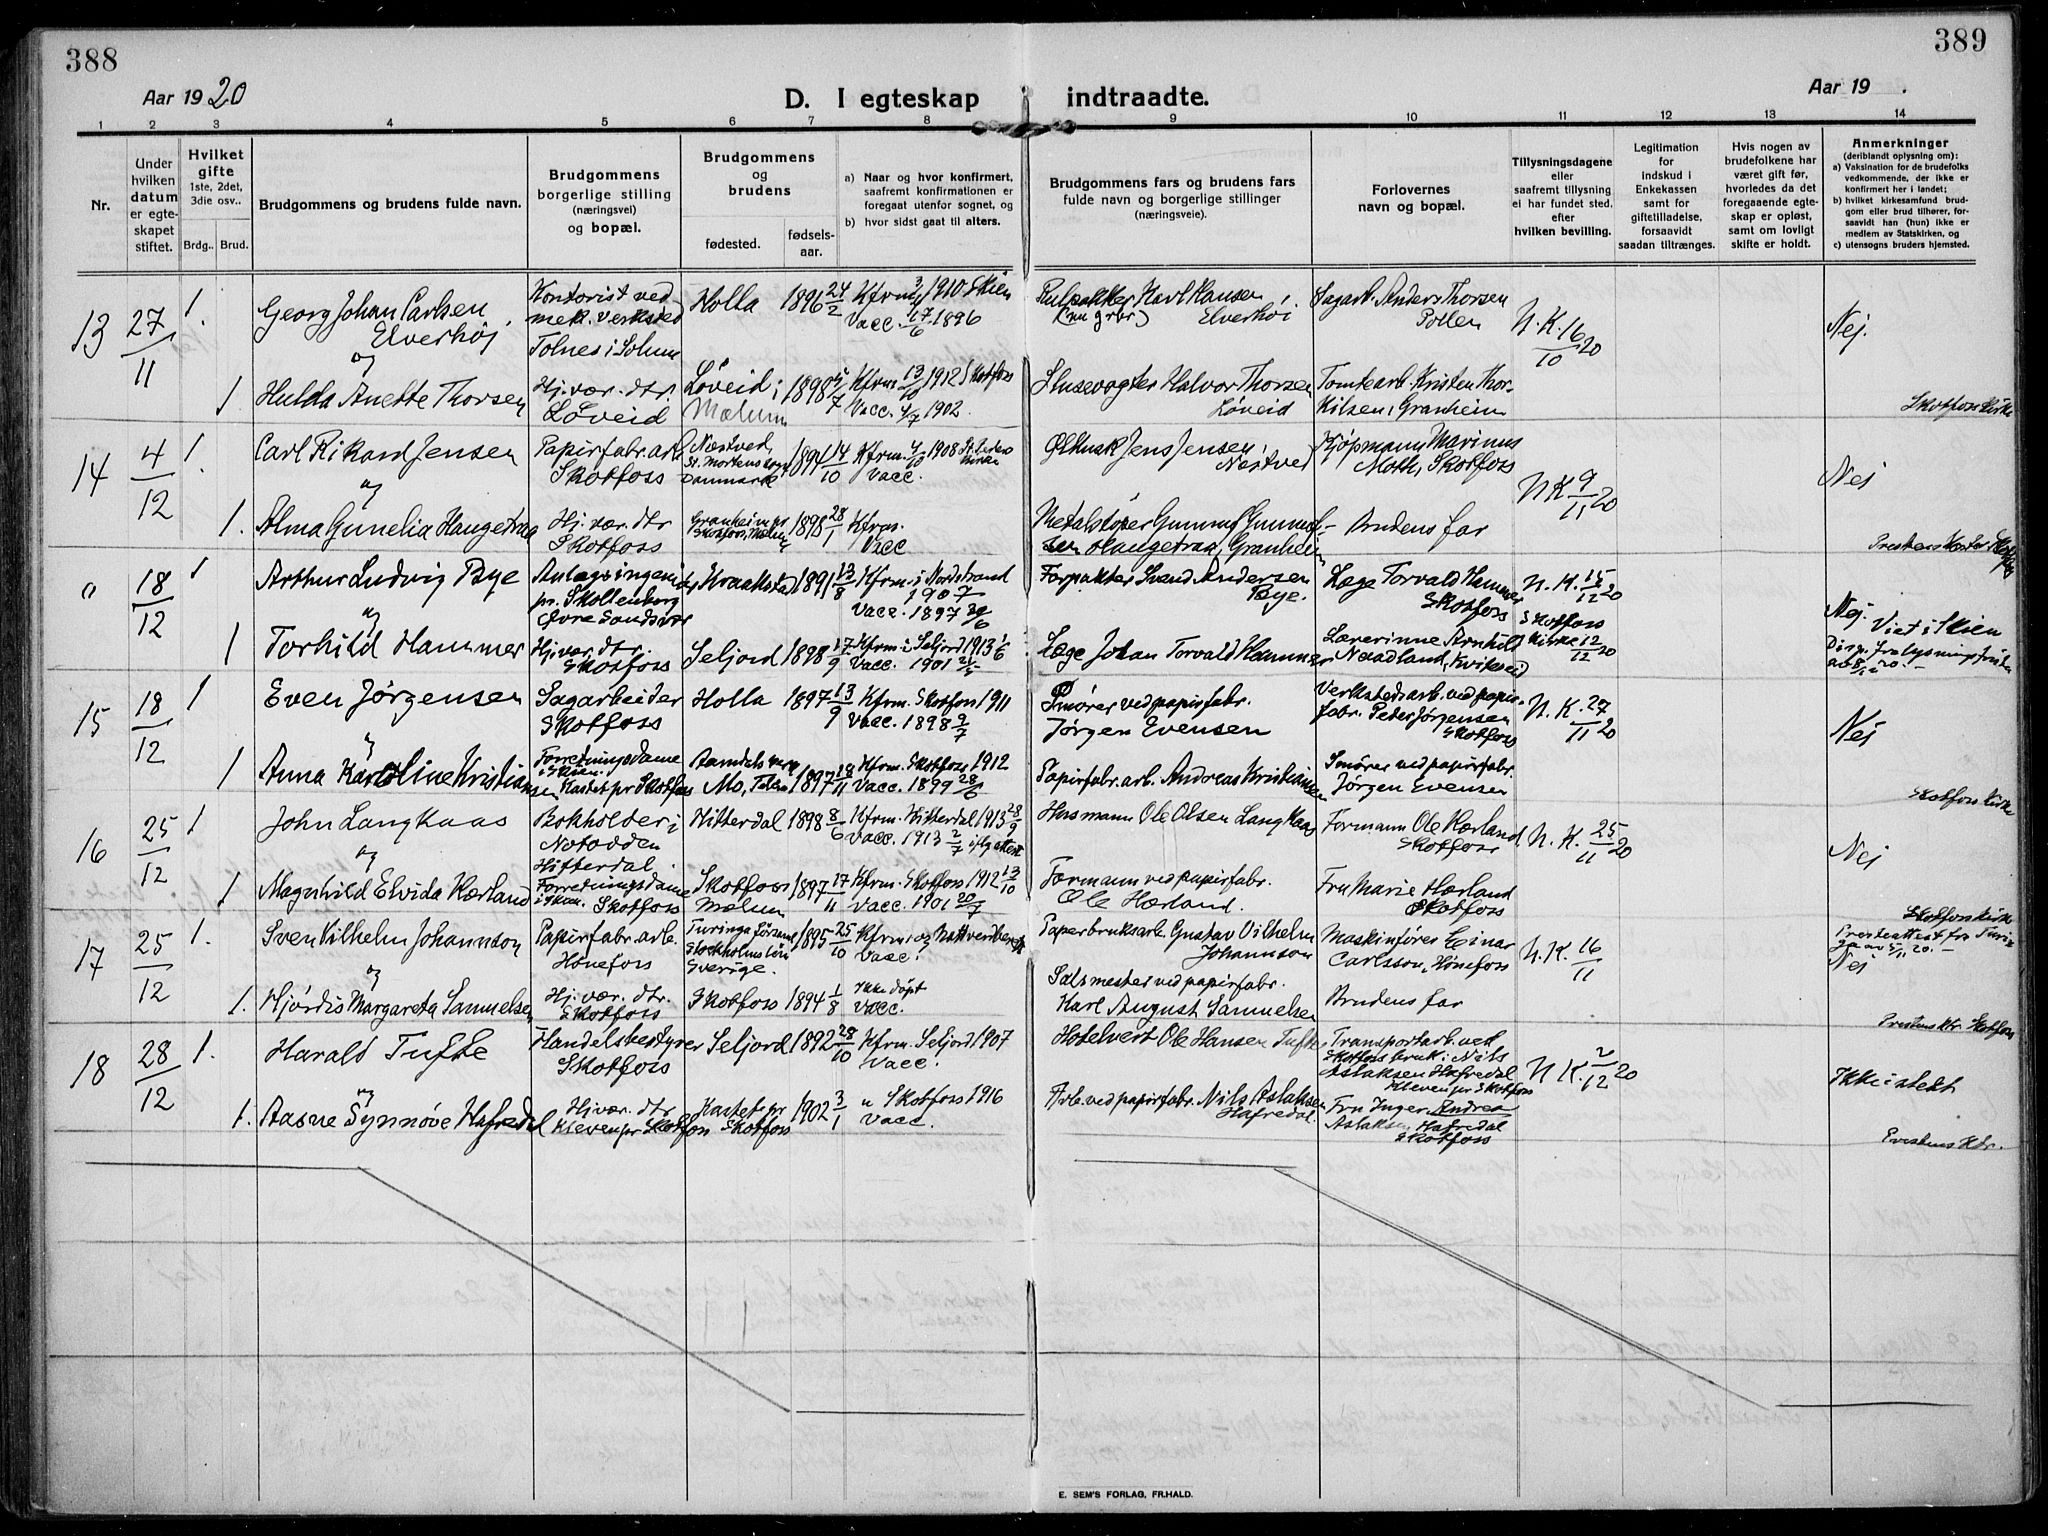 388
389
Aar 1920
D. I egteskap indtraadte.
Aar 19 .
1 2 3 4 5 6 7 8 9 10 11 12 13 14
Nr.
Under hvilken datum er egte-skapet stiftet.
Hvilket gifte
1ste, 2det, 3die osv..
Brdg.. Brud.
Brudgommens og brudens fulde navn.
Brudgommens borgerlige stilling (næringsvei) og bopæl.
Brudgommens og brudens
fødested.
fødsels-aar.
a) Naar og hvor konfirmert, saafremt konfirmationen er foregaat utenfor sognet, og
b) hvor sidst gaat til alters.
Brudgommens fars og brudens fars fulde navn og borgerlige stillinger (næringsveie).
Forlovernes navn og bopæl.
Tillysningsdagene eller saafremt tillysning ei har fundet sted, efter hvilken bevilling.
Legitimation for indskud i Enkekassen samt for giftetilladelse, forsaavidt saadan tiltrænges.
Hvis nogen av brudefolkene har været gift før, hvorledes da det foregaaende egte-skap er opløst, samt om lovligt skifte er holdt.
Anmerkninger
(deriblandt oplysning om):
a) Vaksination for de brudefolks vedkommende, der ikke er konfirmert her i landet;
b) hvilket kirkesamfund brud-gom eller brud tilhører, for-saavidt han (hun) ikke er medlem av Statskirken, og
c) utensogns bruders hjemsted.
13 27/11 1. Georg Johan Carlsen Elverhøj, Kontorist ved mek. Verksted Tolnes i Solum Holla 1896 24/2 Kfrm. 1910 Skien Vacc. 17/6 1896 Karl Hansen Elverhøi Sagarb. Anders Thorsen Pollen N. K. 16/10 20 Nej.
og
1 Hulda Anette Thorsen Hj. vær. dtr. Løveid Løveid i Mælum 1898 Kfrm. 13/10 1912 Skotfoss Vacc. 4/7 1902. Slusevogter Halvor Thorsen Løveid Tomtearb. Kristen Thorkilsen, Granheim Skotfoss Kirke
14 4/12 1. Carl Rikard Jensen Papirfabr. arb. Skotfoss Næstved, St. Mortens sogn Danmark 14/10 Kfrm. 4/10 1908 Vacc. Jens Jensen, Næstved Kjøpmann Marinus Moth, Skotfoss N K 9/11 20 Nej
og
1. Alma Gunelia Haugetraa Hj. vær. dtr Skotfoss Granheim pr Skotfoss, Mælum 1898 28/1 Kfrm. Vacc Metalstøper Gunnuf Gunnufsen Haugetraa, Granheim Brudens far Prestens Kontor Skotfoss
" 18/12 1 Arthur Ludvig Bye pr. Skollenborg Øvre Sandsvær Kraakstad 1891 13/8 Kfrm. i Nordstrand 1907 Vacc. 1897 Forpakter Svend Andersen Bye. Læge Torvald Hammer Skotfoss N. K. 15/12 20 Nej. Viet i Skien
og
1 Torhild Hammer Hj. vær. dtr. Skotfoss Seljord 1898 17/9 Kfrm. i Seljord 1913 Vacc. 1901 Læge Johan Torvald Hammer Lærerinne Arnhild Naadland, Kviteseid Skotfoss Kirke 12/12 20
15 18/12 1 Even Jørgensen Sagarbeider Skotfoss Holla 1897 13/9 Kfrm. Skotfoss 1911 Vacc. 1898 9/7 Smører ved papirfabr. Jørgen Evensen Verkstedsarb. ved papirfabr. Peder Jørgensen Skotfoss N. K. 27/11 20 Nej
og
1 Anna Karoline Kristiansen Forretningsdame i Skien. Hastet pr Skotfoss Mo, Telem. 1897 Kfrm. Skotfoss 1912 Vacc. 1899 28/6 Papirfabr. arb. Andreas Kristiansen Smører ved papirfabr. Jørgen Evensen Skotfoss Kirke
16 25/12 1 John Langkaas Bokholder i Notodden Hitterdal. Hitterdal 1898 8/6 Kfrm. Hitterdal 1913 28/9 Vacc. 1913 2/7 iflg attest Husmann Ole Olsen Langkaas Formann Ole Hærland, Skotfoss N. K. 25/11 20 Nej
og
1 Magnhild Elvida Hærland Forretningsdame i Skien. Skotfoss Skotfoss Mælum 1897 17/11 Kfrm. Skotfoss 1912 13/10 Vacc. 1901 20/7 Formann ved papirfabr. Ole Hærland. Fru Marie Hærland Skotfoss Skotfoss kirke
17 25/12 1. Sven Vilhelm Johannson Papirfabr. arb. Hønefoss Turinga Stockholms län Sverige. 1895 25/10 Kfrm. og Vacc. Paperbruksarb. Gustav Vilhelm Johannson Maskinfører Einar Carlsson, Hønefoss N. K. 16/11 Presteattest fra Turinga av 5/11 20. Nej
og
1. Hjørdis Margareta Samuelsen Hj. vær. dtr. Skotfoss Skotfoss 1894 1/8 Ikke døpt Vacc. Salsmester ved papirfabr. Karl August Samuelsen Brudens far Prestens ktr. Skotfoss
18 28/12 1. Harald Tufte Handelsbestyrer Skotfoss Seljord 1892 28/10 Kfrm. Seljord 1907 Vacc. Hotelvert Ole Hansen Tufte Transportarb. ved Skotfoss bruk: Nils Aslaksen Hafredal Kleven pr Skotfoss N K. 2/12 20 Ikke istedt
og
1. Aasne Synnøve Hafredal Hj. vær. dtr. Kleven pr Skotfoss Hastet pr Skotfoss 1902 3/1 " Skotfoss 1916 Vacc. Arb. ved papirfabr. Nils Aslaksen Hafredal. Fru Inger Andrea Aslaksen Hafredal Skotfoss Prestens Ktr.
E. SEM'S FORLAG, FR.HALD.